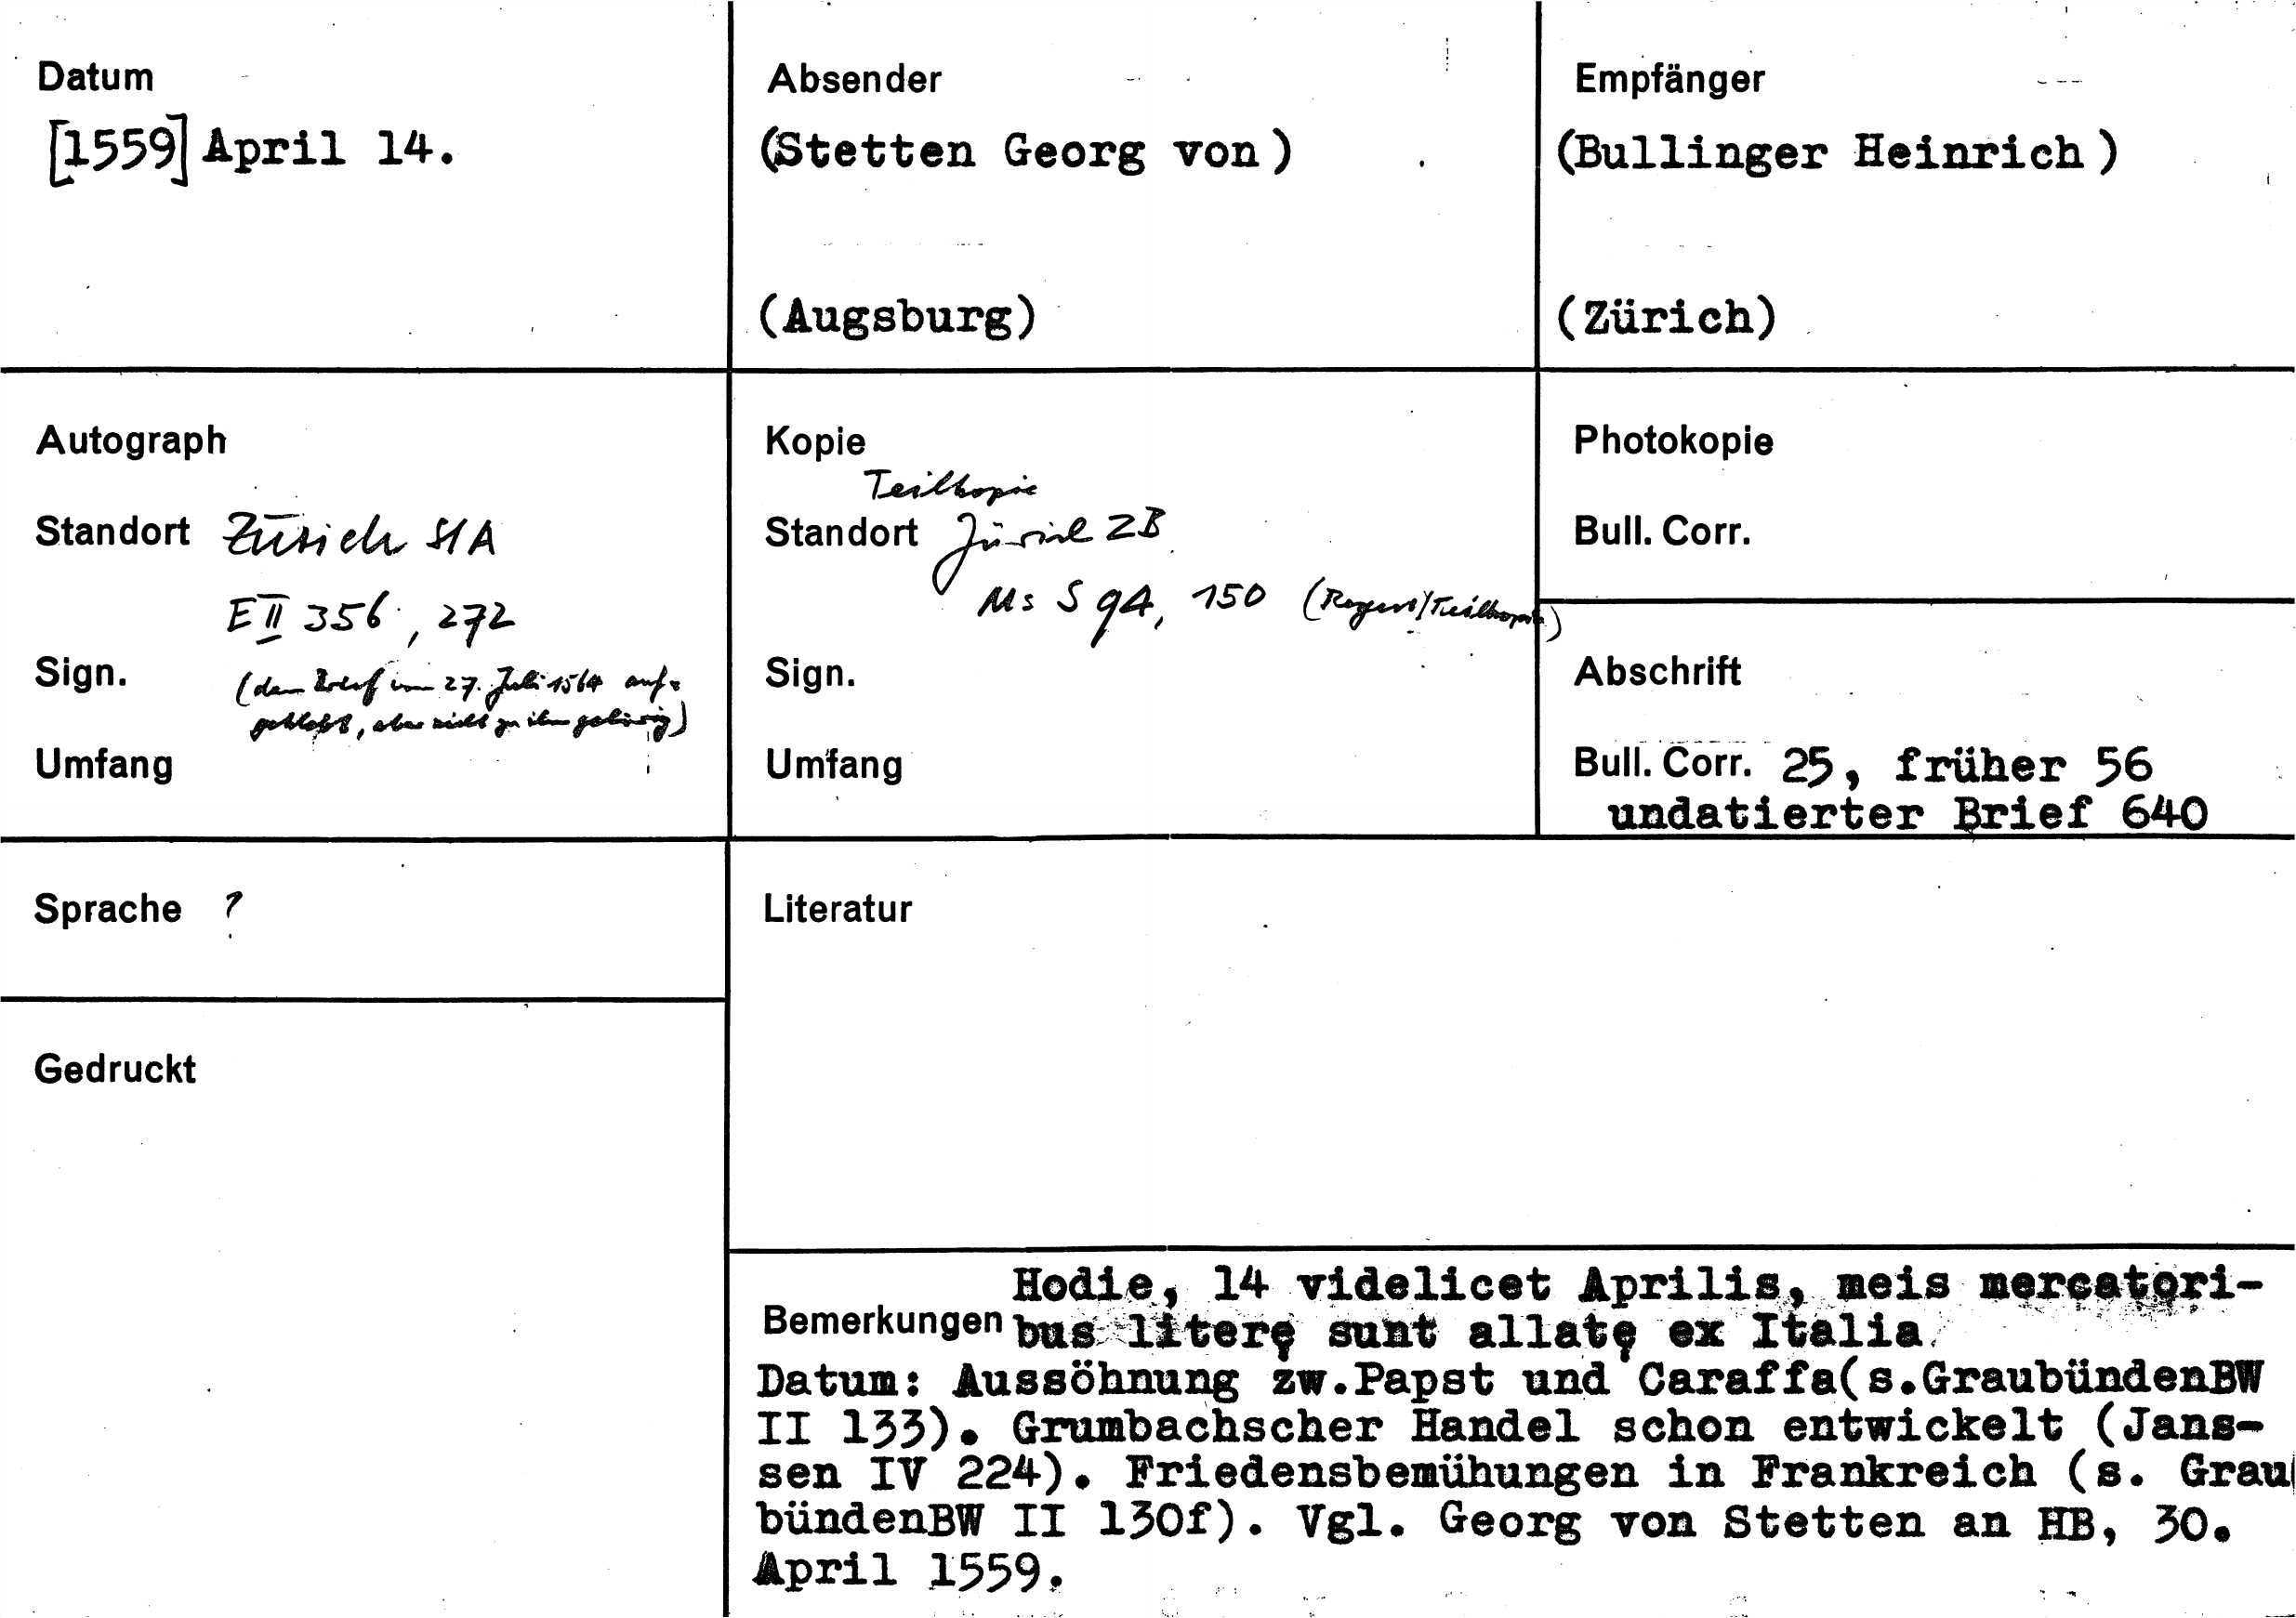 Datum
[1559] April 14.
Absender
(Stetten Georg von)
(Augsburg)
Empfänger
(Bullinger Heinrich)
(Zürich)
Autograph
Standort Zürich StA
E II 356, 272
Sign. (dem Brief vom 27. Juli 1564 auf-
geklebt, aber nicht zu ihm gehörig)
Umfang
Kopie
Teilkopie
Standort Zürich ZB
Ms S 94, 150 (Regest/Teilkopie)
Sign.
Umfang
Photokopie
Bull. Corr.
Abschrift
Bull. Corr. 25, früher 56
undatierter Brief 640
Sprache ?
Gedruckt
Literatur
Hodie, 14 videlicet Aprilis, meis mercatori-
Bemerkungen bus literę sunt allatę ex Italia
Datum: Aussöhnung zw.Papst und Caraffa(s.GraubündenBW
II 133). Grumbachscher Handel schon entwickelt (Jans-
sen IV 224). Friedensbemühungen in Frankreich (s. Grau
bündenBW II 130f). Vgl. Georg von Stetten an HB, 30.
April 1559.